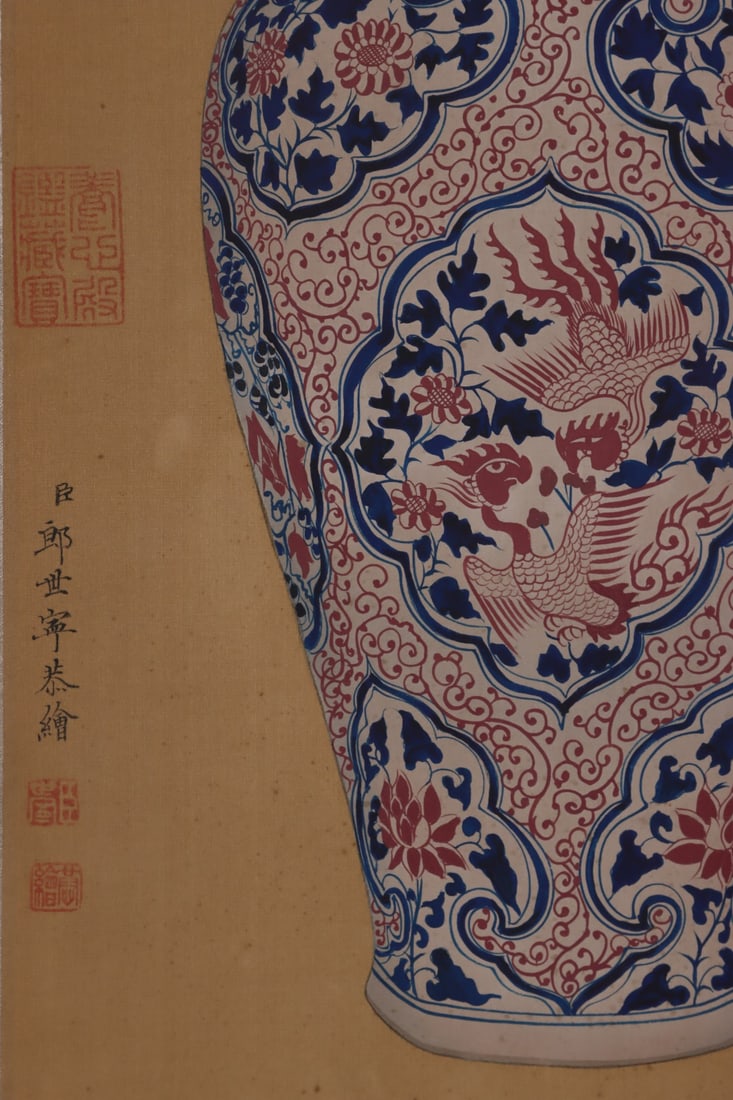 養心殿
鑑藏寶
臣郎世寧恭繪
恭繪